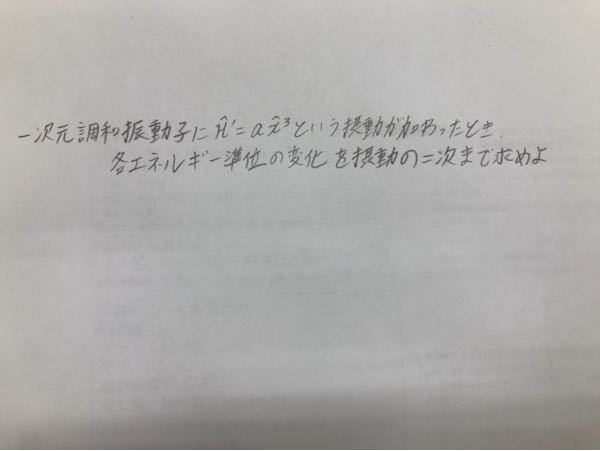 一次元調和振動子に Ĥ' = a x̂³ という摂動が加わったとき.
各エネルギー準位の変化を摂動の二次まで求めよ